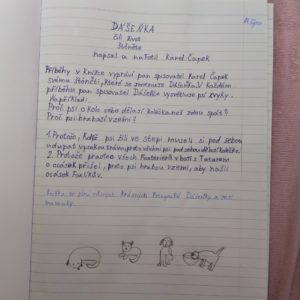 21. října
DÁŠEŇKA
čili život
štěněte
napsal a nafotil Karel Čapek
Příběhy v knize vypráví pan spisovatel Karel Čapek
svému štěněti, které se jmenuje Dášeňka. V každém
příběhu pan spisovatel Dášeňce vysvětluje psí zvyky.
Například:
Proč psi o kolo sebe dělají kolečka než jdou spát?
Proč psi hrabají v zemi?
1. Protože, když psi žili ve stepi museli si pod sebou
udupat vysokou trávu, proto všichni psi pod sebou dělají kolečka.
2. Protože praotec všech Foxteriérů v boji s Tatarem
o ocásek přišel, proto psi hrabou v zemi, aby našli
ocásek Foxlíků.
Knížka se mi